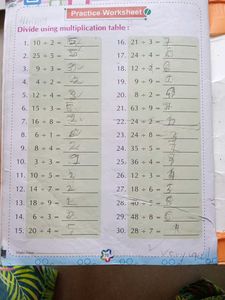 Practice Worksheet
Divide using multiplication table :
1. 10 ÷ 2 = 5
2. 25 ÷ 5 = 5
3. 9 ÷ 3 = 3
4. 4 ÷ 2 = 2
5. 12 ÷ 4 = 3
6. 15 ÷ 3 = 5
7. 16 ÷ 8 = 2
8. 6 ÷ 1 = 6
9. 8 ÷ 4 = 2
10. 3 ÷ 3 = 1
11. 10 ÷ 5 = 2
12. 14 ÷ 7 = 2
13. 18 ÷ 9 =
14. 6 ÷ 3 =
15. 20 ÷ 4 = 5
16. 21 ÷ 3 = 7
17. 24 ÷ 4 = 6
18. 12 ÷ 2 = 6
19. 9 ÷ 9 =
20. 8 ÷ 2 =
21. 63 ÷ 9 = 7
22. 24 ÷ 2 =
23. 24 ÷ 8 = 3
24. 35 ÷ 5 = 7
25. 36 ÷ 4 = 9
26. 36 ÷ 12 = 3
27. 18 ÷ 6 = 3
28. 40 ÷ 5 =
29. 48 ÷ 8 = 6
30. 28 ÷ 7 = 4